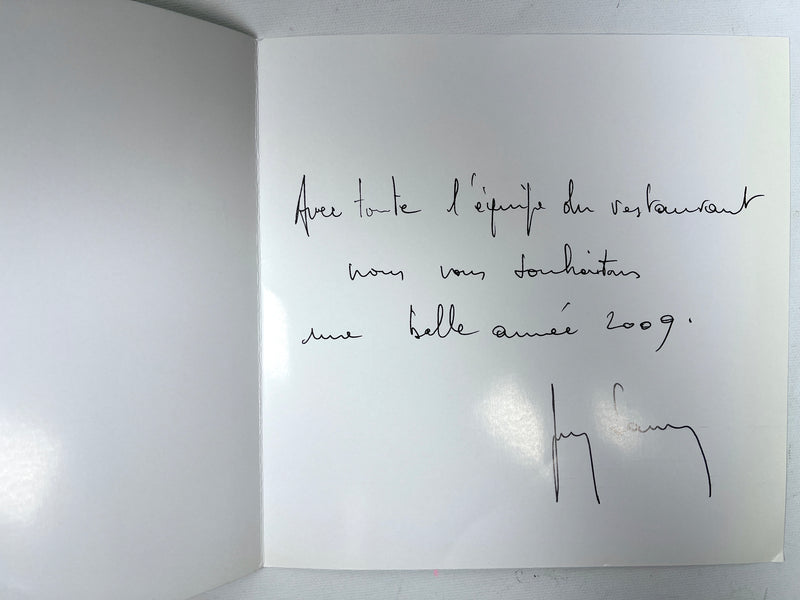 Avec toute l'équipe du restaurant
nous vous souhaitons
une belle année 2009.